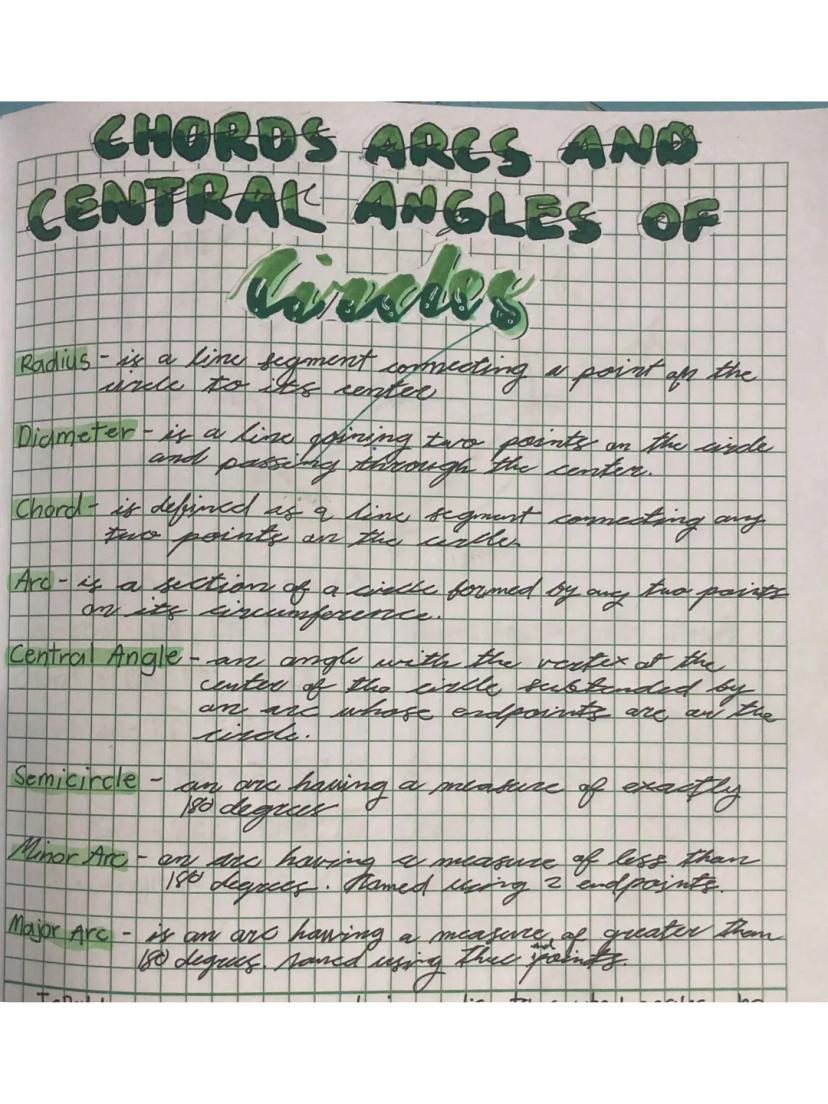 CHORDS ARCS AND
CENTRAL ANGLES OF
Circles
Radius - is a line segment connecting a point on the
circle to its center
Diameter - is a line joining two points on the circle
and passing through the center.
Chord - is defined as a line segment connecting any
two points on the circle.
Arc - is a section of a circle formed by any two points
on its circumference.
Central Angle - an angle with the vertex at the
center of the circle subtended by
an arc whose endpoints are on the
circle.
Semicircle - an arc having a measure of exactly
180 degrees
Minor Arc - an arc having a measure of less than
180 degrees. Named using 2 endpoints.
Major Arc - is an arc having a measure of greater than
180 degrees. Named using three points.